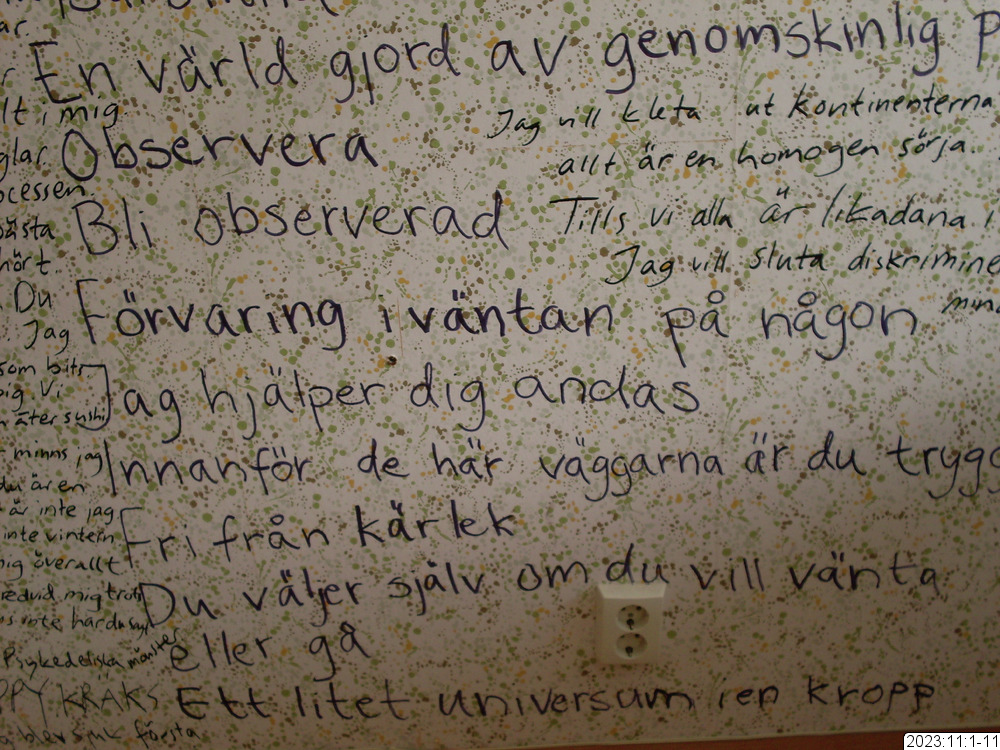 En värld gjord av genomskinlig p
Observera
Bli observerad
Förvaring i väntan på någon
Jag hjälper dig andas
Innanför de här väggarna är du trygg
Fri från kärlek
Du väljer själv om du vill vänta
eller gå
Ett litet universum i en kropp
Jag vill kleta ut kontinenterna
allt är en homogen sörja.
Tills vi alla är likadana i
Jag vill sluta diskrimine
min
ar
r
lt i mig.
glar.
ocessen.
bästa
hört.
Du
Jag
som bits
Vi
äter sushi
minns jag
du är en
är inte jag
inte vintern
mig överallt
redvid mig trots
inte
Psykedeliska mönster
PPY KRAKS
första
2023:11:1-11